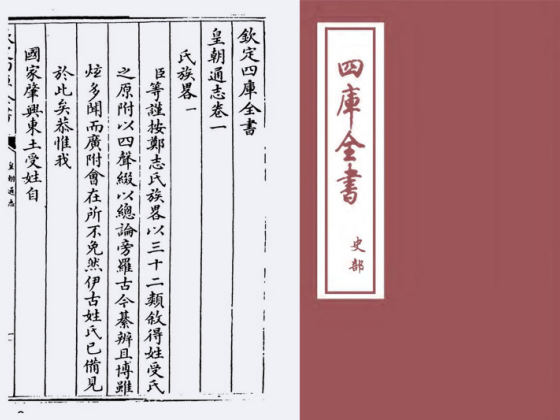 欽定四庫全書
皇朝通志卷一
氏族畧一
臣等謹按鄭志氏族畧以三十二類敘得姓受氏
之原附以四聲綴以總論旁羅古今綦辨且博雖
炫多聞而廣附會在所不免然伊古姓氏已備見
於此矣恭惟我
國家肇興東土受姓自
皇朝通志
四庫全書
史部